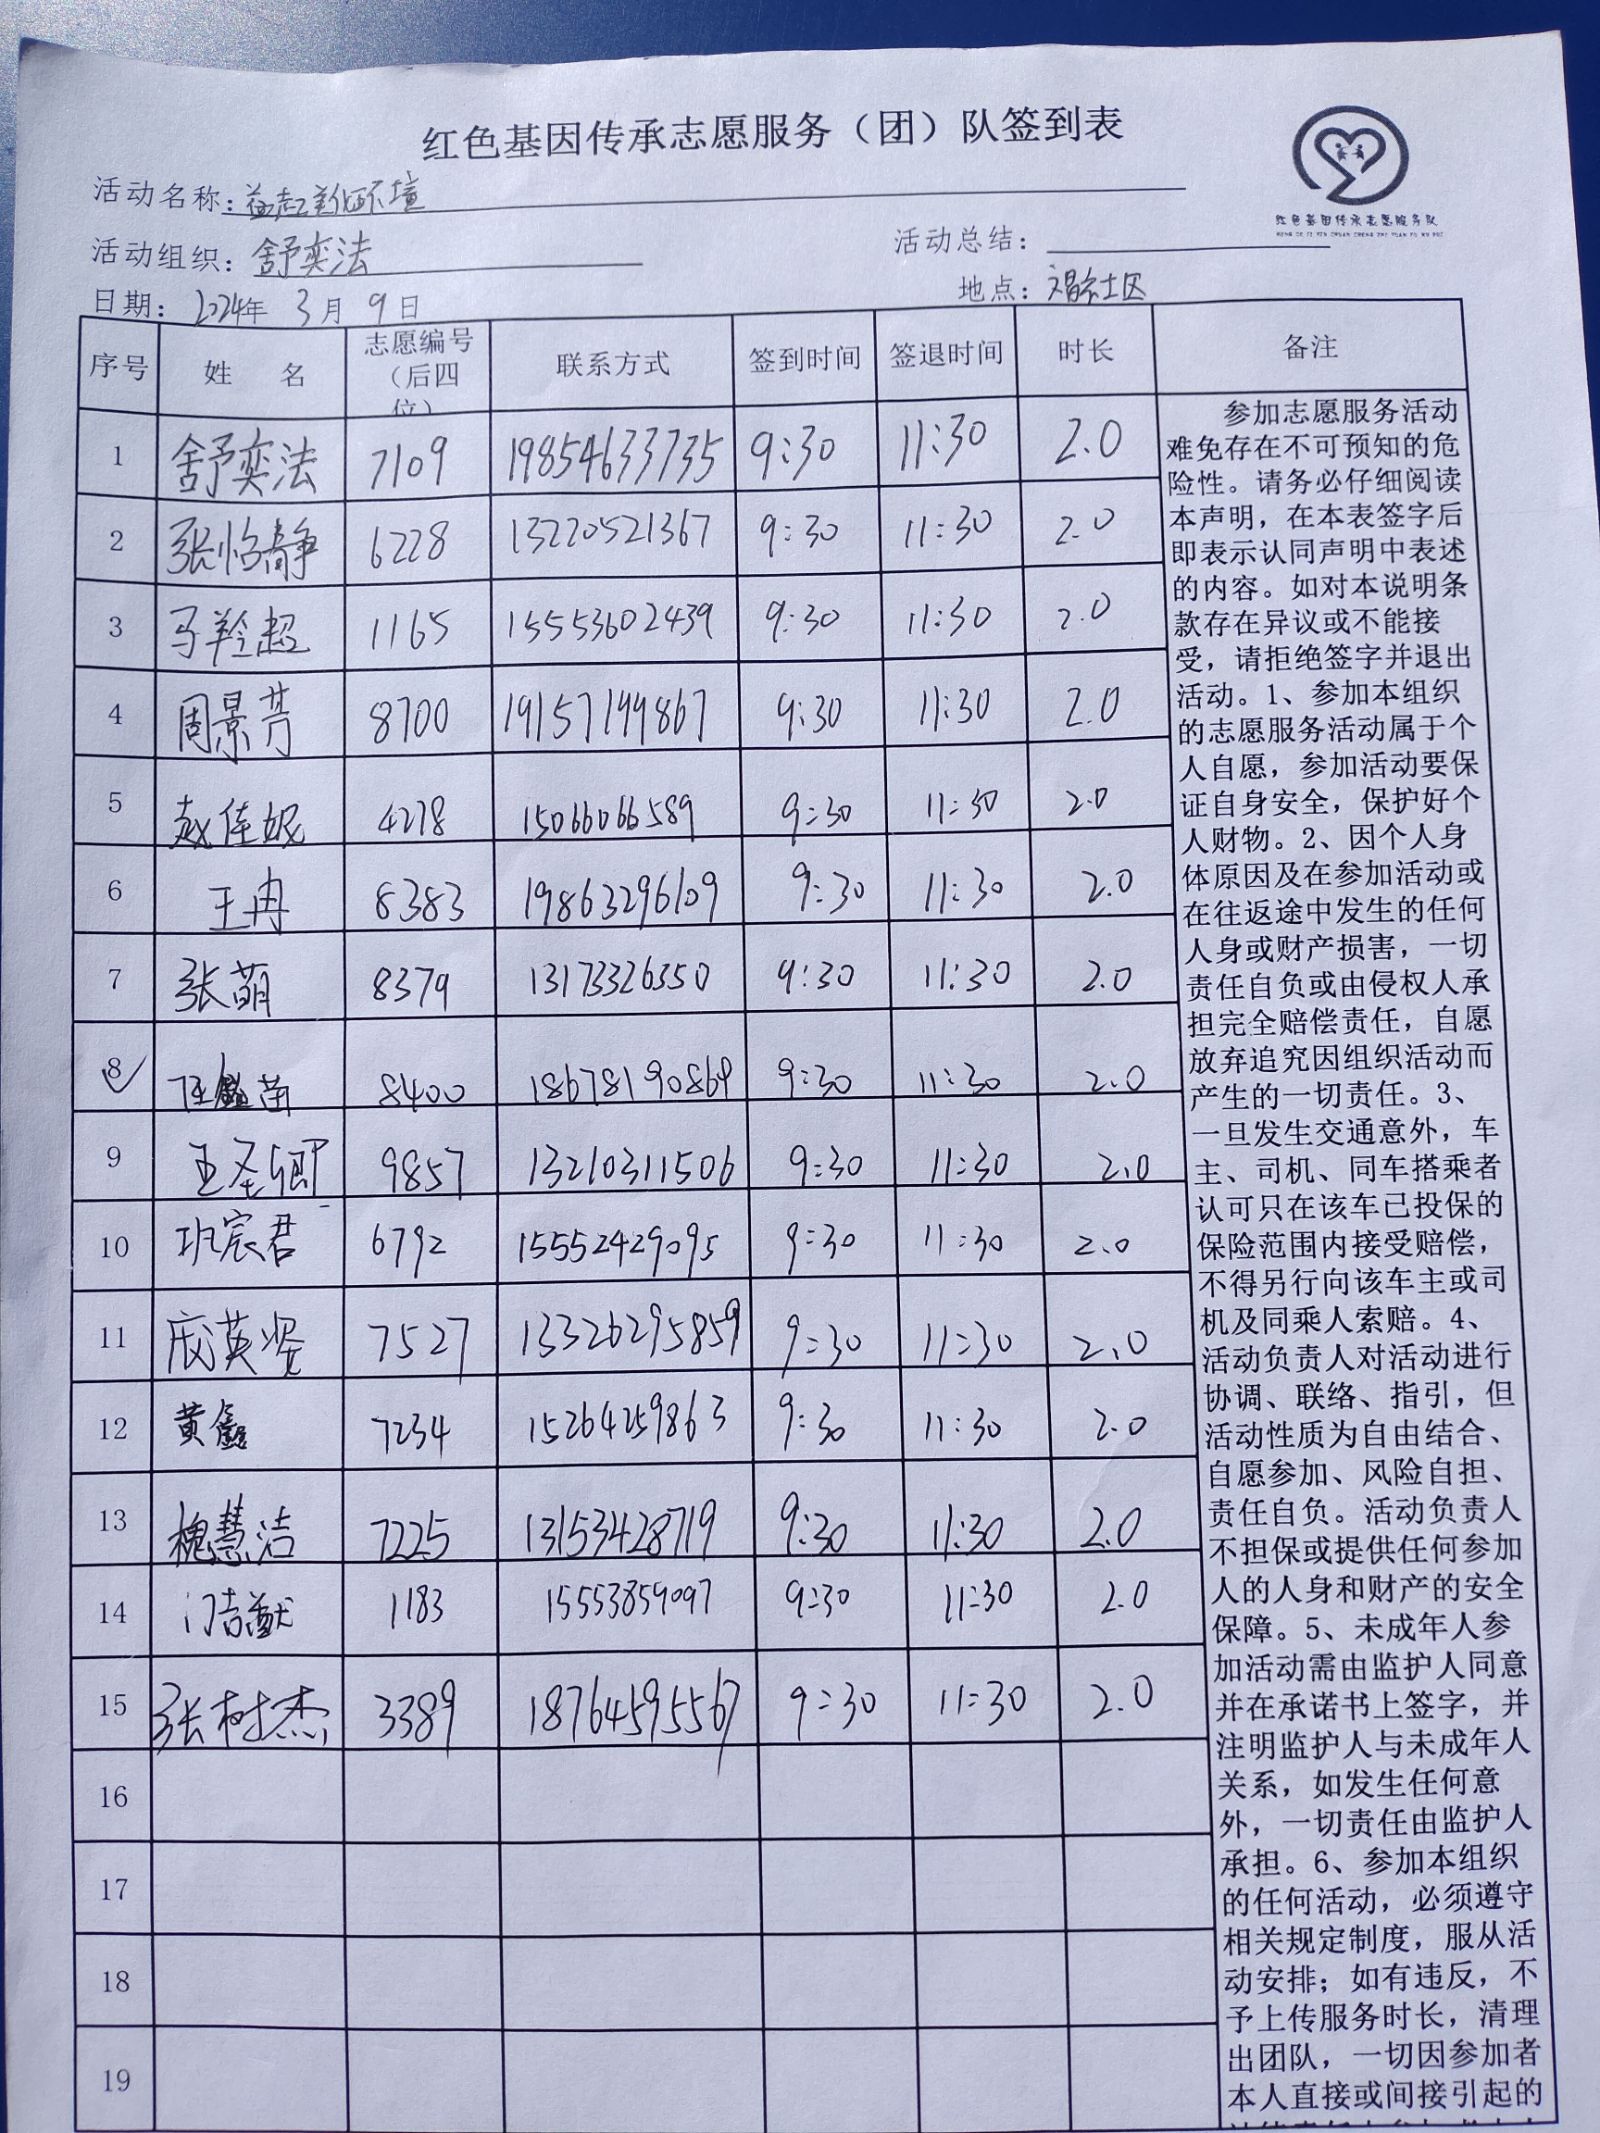 红色基因传承志愿服务（团）队签到表
红色基因传承志愿服务队
活动名称：益起美化环境
活动组织：舒奕法 活动总结：
日期：2024年 3月 9日 地点：文昌社区
序号 姓 名 志愿编号（后四位） 联系方式 签到时间 签退时间 时长 备注
1 舒奕法 7109 19854633735 9:30 11:30 2.0
2 张怡静 6228 13220521367 9:30 11:30 2.0
3 马羚超 1165 15553602439 9:30 11:30 2.0
4 周景芳 8700 19157199867 9:30 11:30 2.0
5 赵佳妮 4278 15066066589 9:30 11:30 2.0
6 王冉 8383 19863296109 9:30 11:30 2.0
7 张萌 8379 13173326350 9:30 11:30 2.0
8 8400 18678190869 9:30 11:30 2.0
9 王圣卿 9857 13210311506 9:30 11:30 2.0
10 班宸君 6792 15552429095 9:30 11:30 2.0
11 7527 13326295859 9:30 11:30 2.0
12 黄鑫 7234 15264259863 9:30 11:30 2.0
13 槐慧洁 7225 13153428719 9:30 11:30 2.0
14 1183 15553859097 9:30 11:30 2.0
15 张树杰 3389 18764595567 9:30 11:30 2.0
16
17
18
19
参加志愿服务活动
难免存在不可预知的危
险性。请务必仔细阅读
本声明，在本表签字后
即表示认同声明中表述
的内容。如对本说明条
款存在异议或不能接
受，请拒绝签字并退出
活动。1、参加本组织
的志愿服务活动属于个
人自愿，参加活动要保
证自身安全，保护好个
人财物。2、因个人身
体原因及在参加活动或
在往返途中发生的任何
人身或财产损害，一切
责任自负或由侵权人承
担完全赔偿责任，自愿
放弃追究因组织活动而
产生的一切责任。3、
一旦发生交通意外，车
主、司机、同车搭乘者
认可只在该车已投保的
保险范围内接受赔偿，
不得另行向该车主或司
机及同乘人索赔。4、
活动负责人对活动进行
协调、联络、指引，但
活动性质为自由结合、
自愿参加、风险自担、
责任自负。活动负责人
不担保或提供任何参加
人的人身和财产的安全
保障。5、未成年人参
加活动需由监护人同意
并在承诺书上签字，并
注明监护人与未成年人
关系，如发生任何意
外，一切责任由监护人
承担。6、参加本组织
的任何活动，必须遵守
相关规定制度，服从活
动安排；如有违反，不
予上传服务时长，清理
出团队，一切因参加者
本人直接或间接引起的